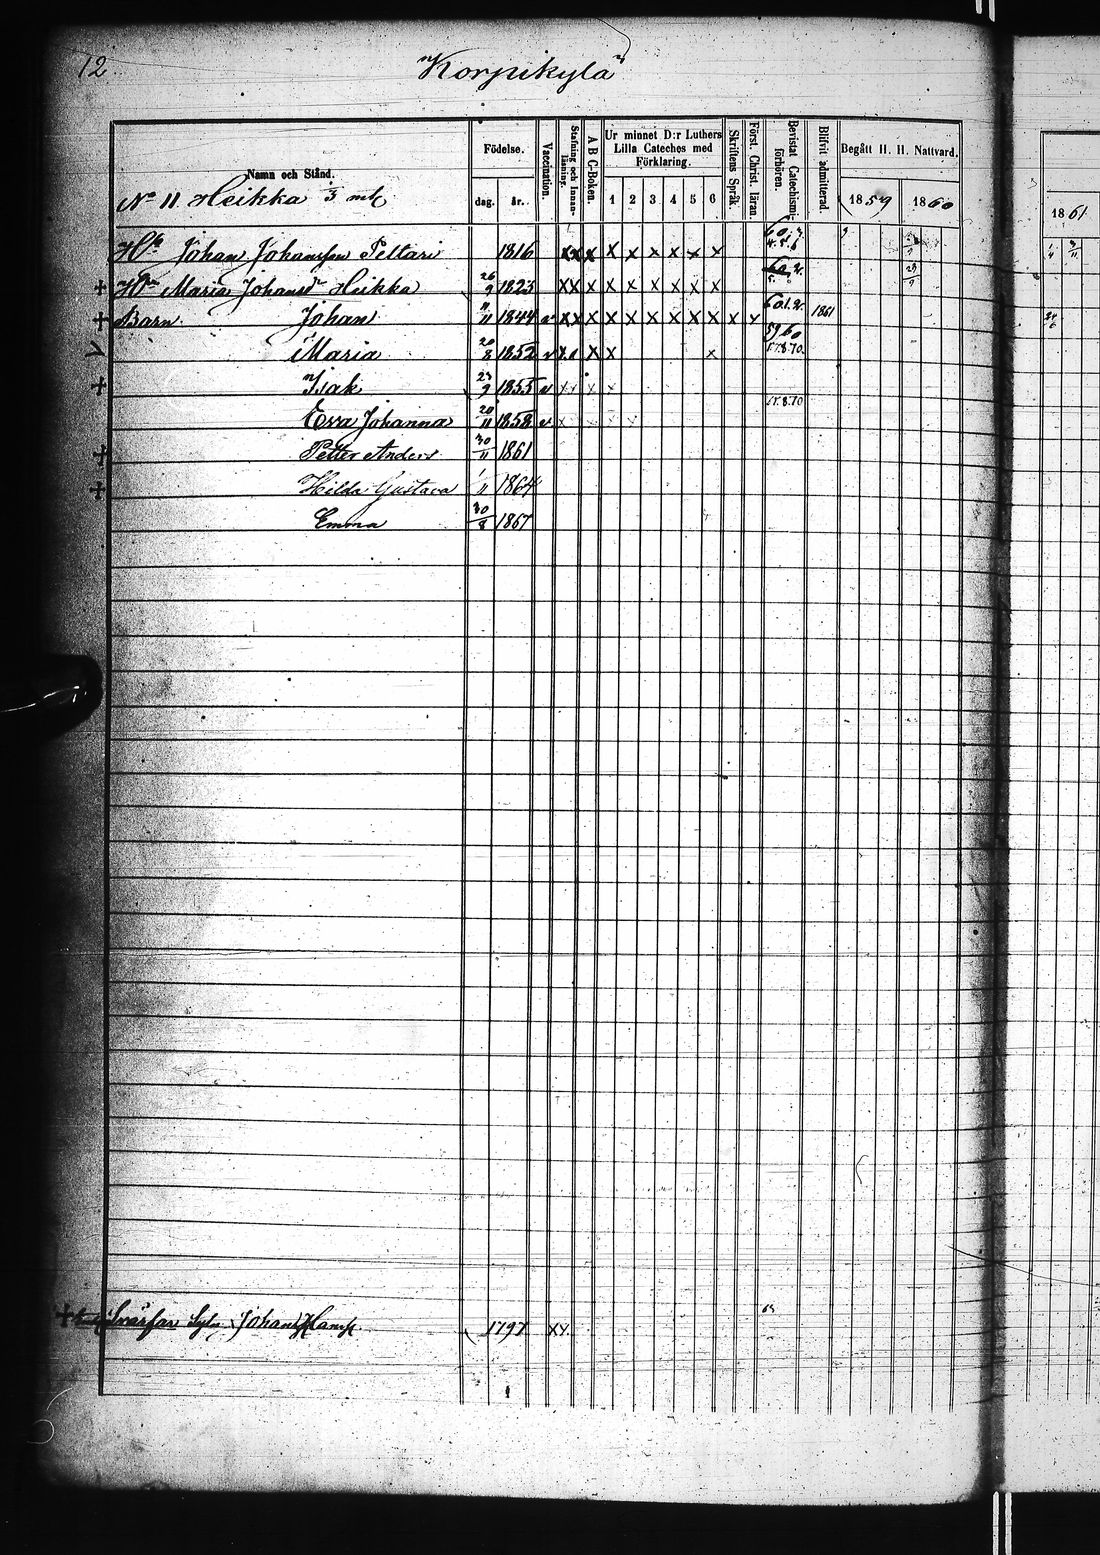 12
"Korpikylä"
Namn och Stånd.
Födelse.
dag. år.
Vaccination.
Stafning och Innanläsning.
A B C-Boken.
Ur minnet D:r Luthers Lilla Cateches med Förklaring.
1 2 3 4 5 6
Skriftens Språk.
Först. Christ. läran.
Bevistat Catechismi-förhören.
Blifvit admitterad.
Begått H. H. Nattvard.
1859 1860
1861
No 11 Heikka mtl
Johan Johansson Pettari 1816 x x x x x x x x x
+ Maria Johansd Heikka 26/9 1823 x x x x x x x x x
+ Barn Johan 11/11 1844 v x x x x x x x x x x x 1861
Maria 20/8 1852 v x x x x
+ Isak 23/9 1855 v x x x x
Eva Johanna 20/11 1858 v x
+ Petter Anders 30/11 1861
+ Hilda Gustava 1/11 1864
Emma 30/8 1867
+ Svärfar Johan 1797 x x